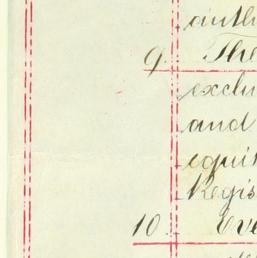 auth
9. The
exclu
and
equi
Regis
10. Eve